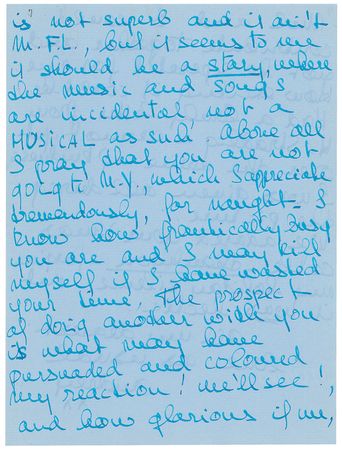 is not superb and it ain't
M.F.L., but it seems to me
it should be a story, where
the music and songs
are incidental, not a
MUSICAL as such. Above all
I pray that you are not
going to N.Y., which I appreciate
tremendously, for nought. I
know how frantically busy
you are and I may kill
myself if I have wasted
your time. The prospect
of doing another with you
is what may have
persuaded and coloured
my reaction! We'll see!,
and how glorious if we,